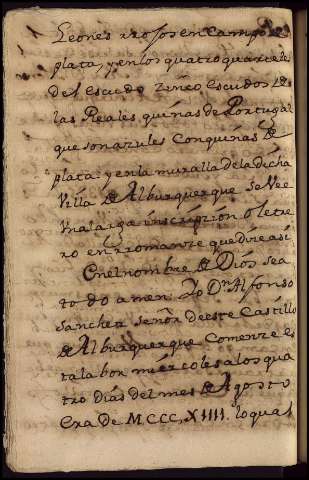 Leones rrojos en Campo de
plata, y en los quatro quarteles
del escudo zinco escudos de
las Reales quinas de Portugal
que son azules Con quinas de
plata: y en la muralla de la dícha
Villa de Alburquerque se Vee
una larga inscripzion o letre
ro en rromanze que dize así
En el nombre de Diós sea
to do amen. Yo Dn Alfonso
sanchez señor de este Castíllo
de Alburquerque Comenze es
ta labor miércoles a los qua
tro días del mes de Agosto
era de MCCC,XIIII. lo qual